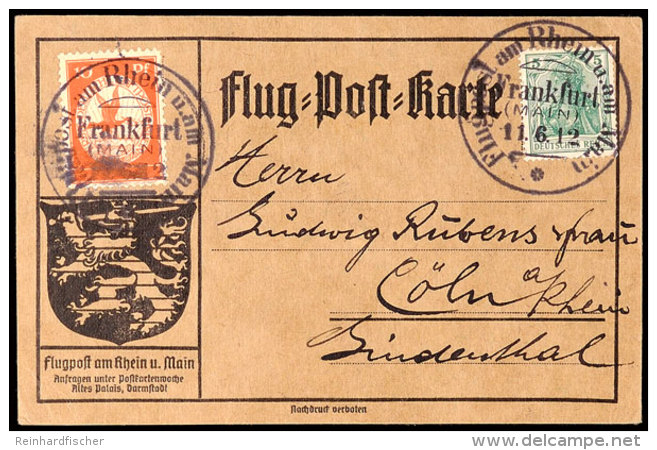 Flug=Post=Karte
10 Pf
Flugpost am Rhein u. am Main
Frankfurt
(MAIN)
Flugpost am Rhein u. am Main
5
Frankfurt
(MAIN)
11.6.12
DEUTSCHES REICH
Herrn
Ludwig Rubens frau
Cöln a/Rhein
Lindenthal
Flugpost am Rhein u. Main
Anfragen unter Postkartenwoche
Altes Palais, Darmstadt
Nachdruck verboten
Reinhardfischer
delcampe.net